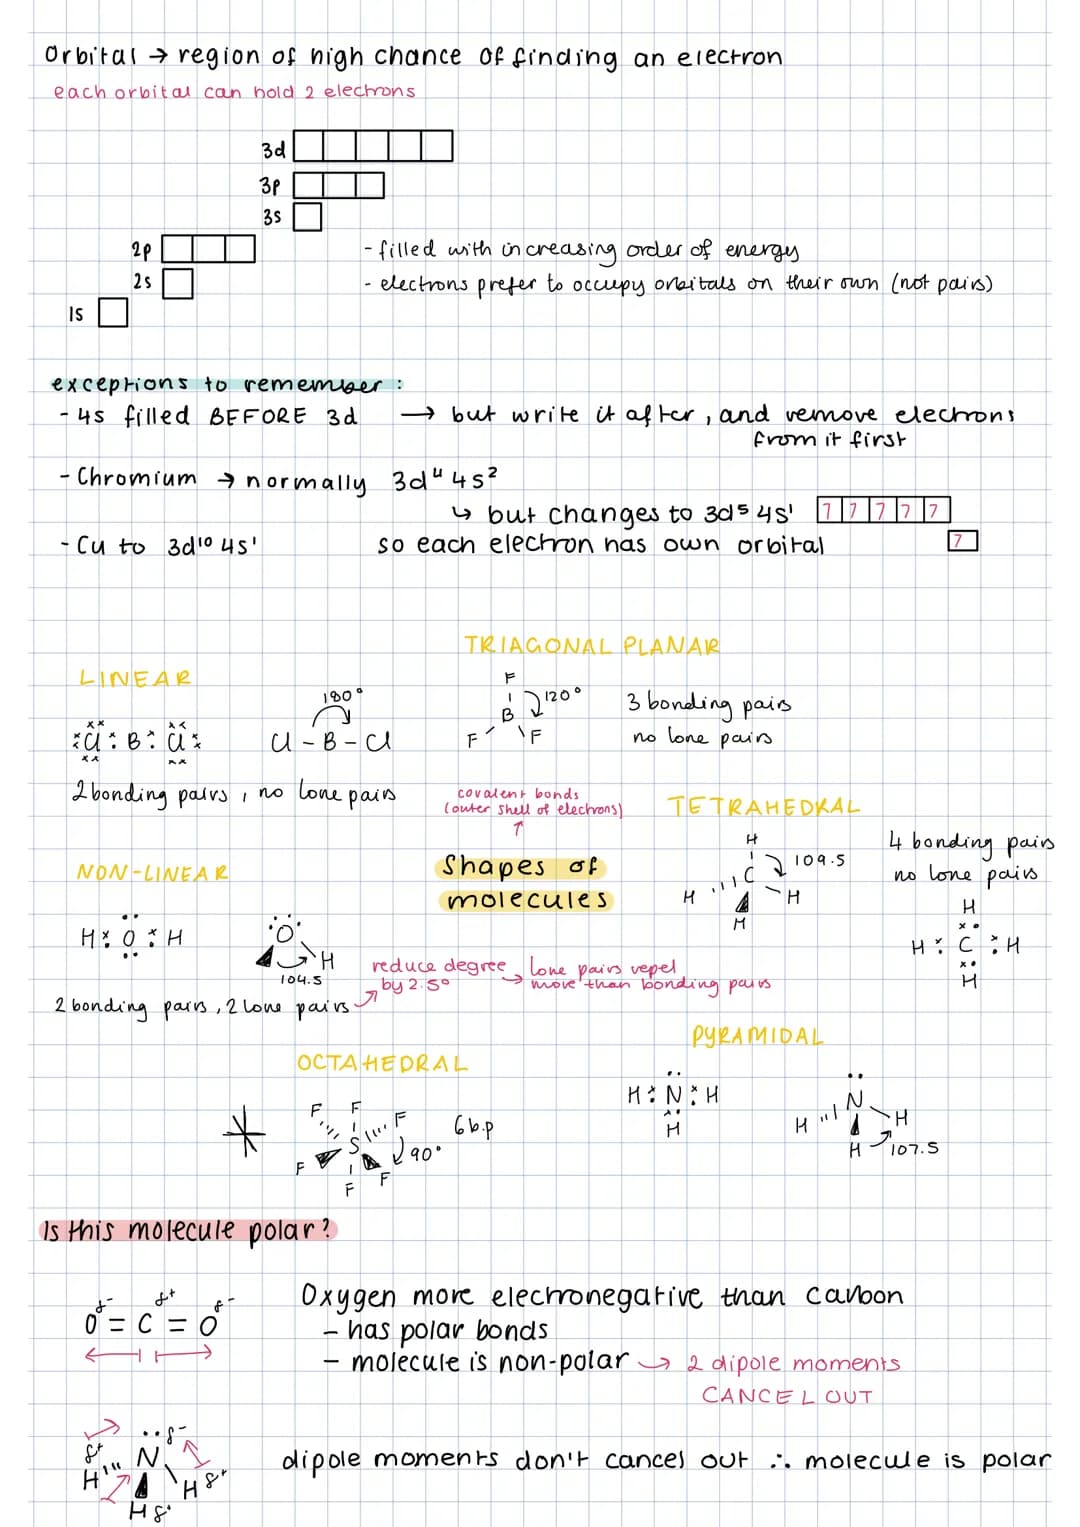 Orbital → region of high chance of finding an electron
each orbital can hold 2 electrons
3d
3p
3s
2p
2s
1s
- filled with increasing order of energy
- electrons prefer to occupy orbitals on their own (not pairs)
exceptions to remember :
- 4s filled BEFORE 3d → but write it after, and remove electrons
from it first
- Chromium → normally 3d⁴ 4s²
↳ but changes to 3d⁵ 4s¹
- Cu to 3d¹⁰ 4s¹
so each electron has own orbital
TRIAGONAL PLANAR
LINEAR
Cl : B : Cl
180°
Cl - B - Cl
2 bonding pairs, no lone pairs
F
B
120°
F
F
3 bonding pairs
no lone pairs
covalent bonds
(outer shell of electrons)
↑
Shapes of
molecules
TETRAHEDRAL
H
C
109.5
H
H
H
4 bonding pairs
no lone pairs
H
H C H
H
NON-LINEAR
H O H
O
H
104.5
2 bonding pairs, 2 lone pairs
reduce degree
by 2.5°
→ lone pairs repel
more than bonding pairs
PYRAMIDAL
H N H
H
N
H
H
H
107.5
OCTAHEDRAL
F F F
S
F F F
90°
6 b.p
Is this molecule polar?
δ- δ+ δ-
O = C = O
Oxygen more electronegative than carbon
- has polar bonds
- molecule is non-polar → 2 dipole moments
CANCEL OUT
δ-
δ+ N
H H δ+
H δ+
dipole moments don't cancel out ∴ molecule is polar